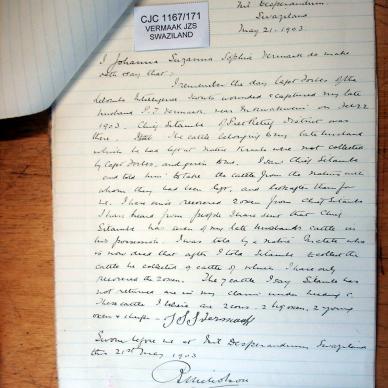 CJC 1167/171
VERMAAK JZS
SWAZILAND
Nil Desperandum
Swaziland
May 21-1903
I Johanna Suzanna Sophia Vermaak do make
oath & say that:-
I remember the day Capt Forbes of the
Intelligence Scouts wounded & captured my late
husband P. J. Vermaak near on
1903. Chief Silambo of District was
there. The cattle belonging to my late husband
which he had left at native Kraals were not collected
by Capt Forbes, and given to me. I saw Chief Silambo
and told him to take the cattle from the natives with
whom they had been left, and look after them for
me. I have since recovered 2 oxen from Chief Silambo
I have heard from people I have sent that Chief
Silambo has seven of my late husbands cattle in
his possession. I was told by a native who
is now dead that after I told Silambo to collect the
cattle he collected 9 cattle of which I have only
recovered the 2 oxen. The 7 cattle I say Silambo has
not returned are in my claim under heading
These cattle I believe are 2 cows. 2 big oxen, 2 young
oxen & 1 heifer - J S S Vermaak
Sworn before me at Nil Desperandum Swaziland
this 21st May 1903
R Nicholson